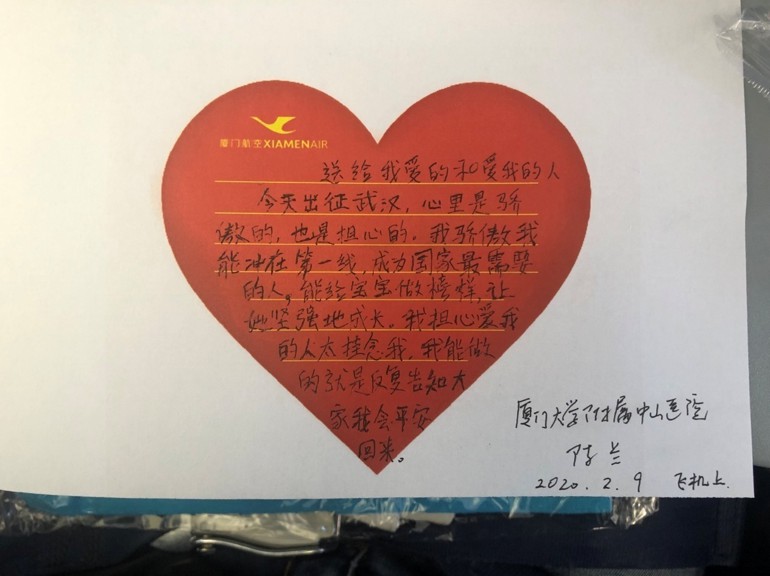 厦门航空 XIAMENAIR
送给我爱的和爱我的人
今天出征武汉，心里是骄
傲的，也是担心的。我骄傲我
能冲在第一线，成为国家最需要
的人，能给宝宝做榜样，让
她坚强地成长。我担心爱我
的人太挂念我，我能做
的就是反复告知大
家我会平安
回来。
厦门大学附属中山医院
陈兰
2020.2.9 飞机上.